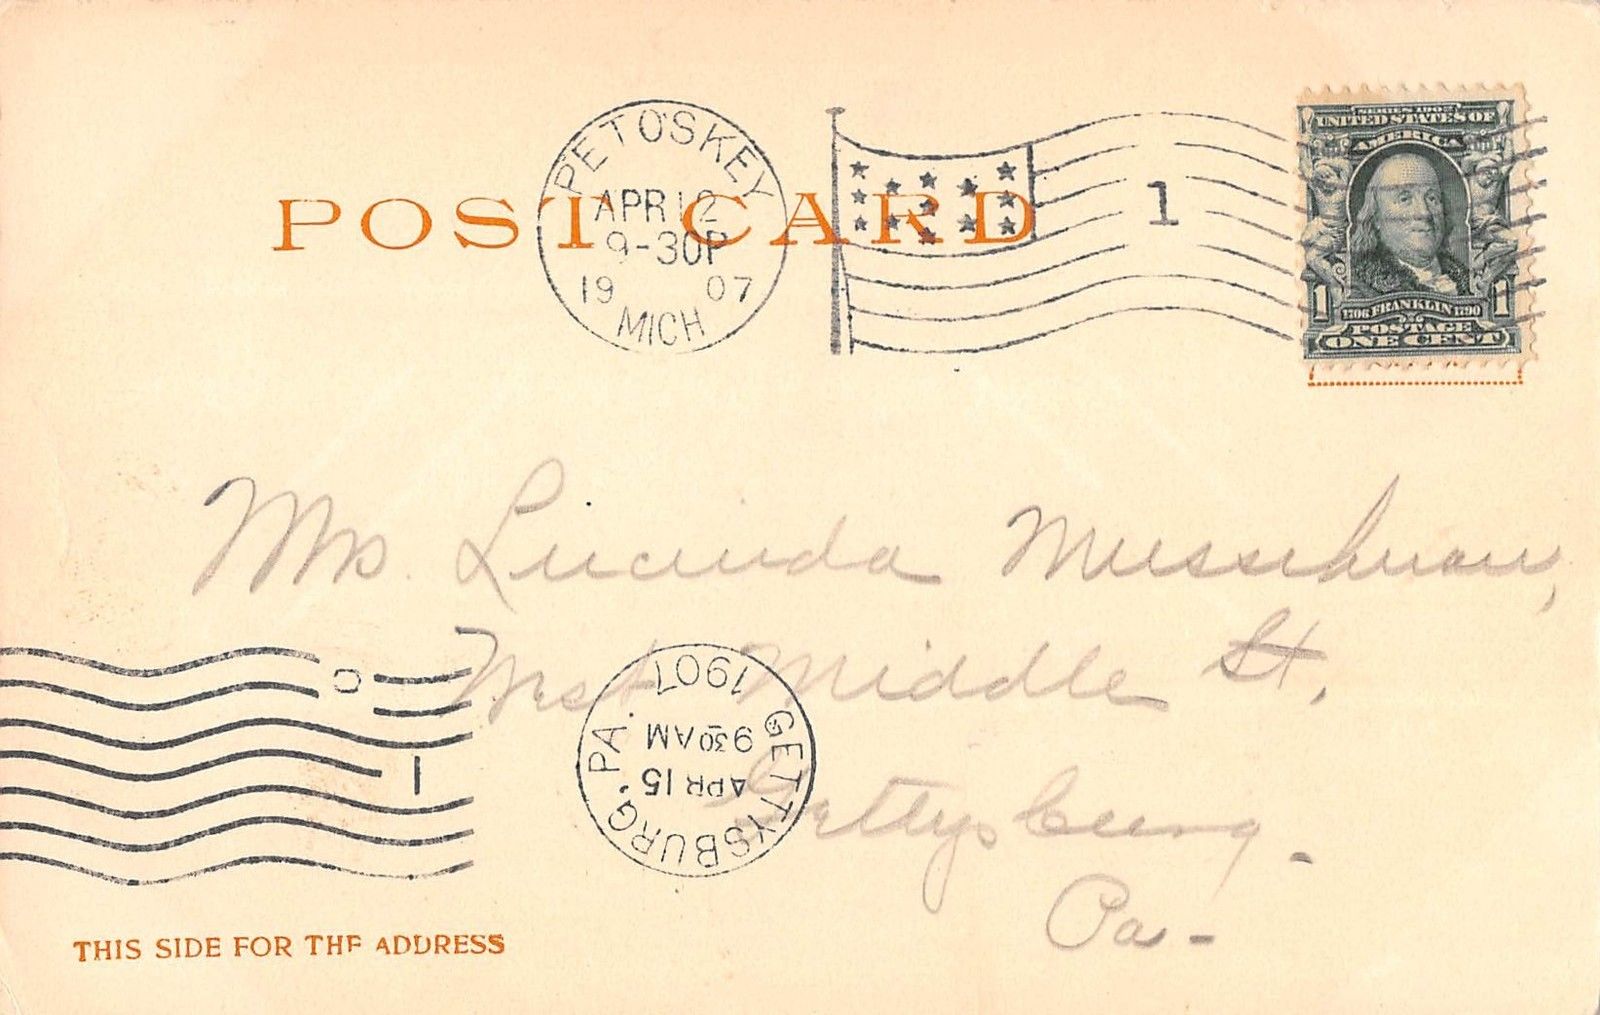 POST CARD
PETOSKEY
APR 12
9-30P
19 07
MICH
1
SERIES 1902
UNITED STATES OF
AMERICA
1 1706 FRANKLIN 1790 1
POSTAGE
ONE CENT
Mrs. Lucinda Musselman,
West Middle St,
Gettysburg.
Pa-
GETTYSBURG, PA.
APR 15
9 30 AM
1907
C
1
THIS SIDE FOR THE ADDRESS